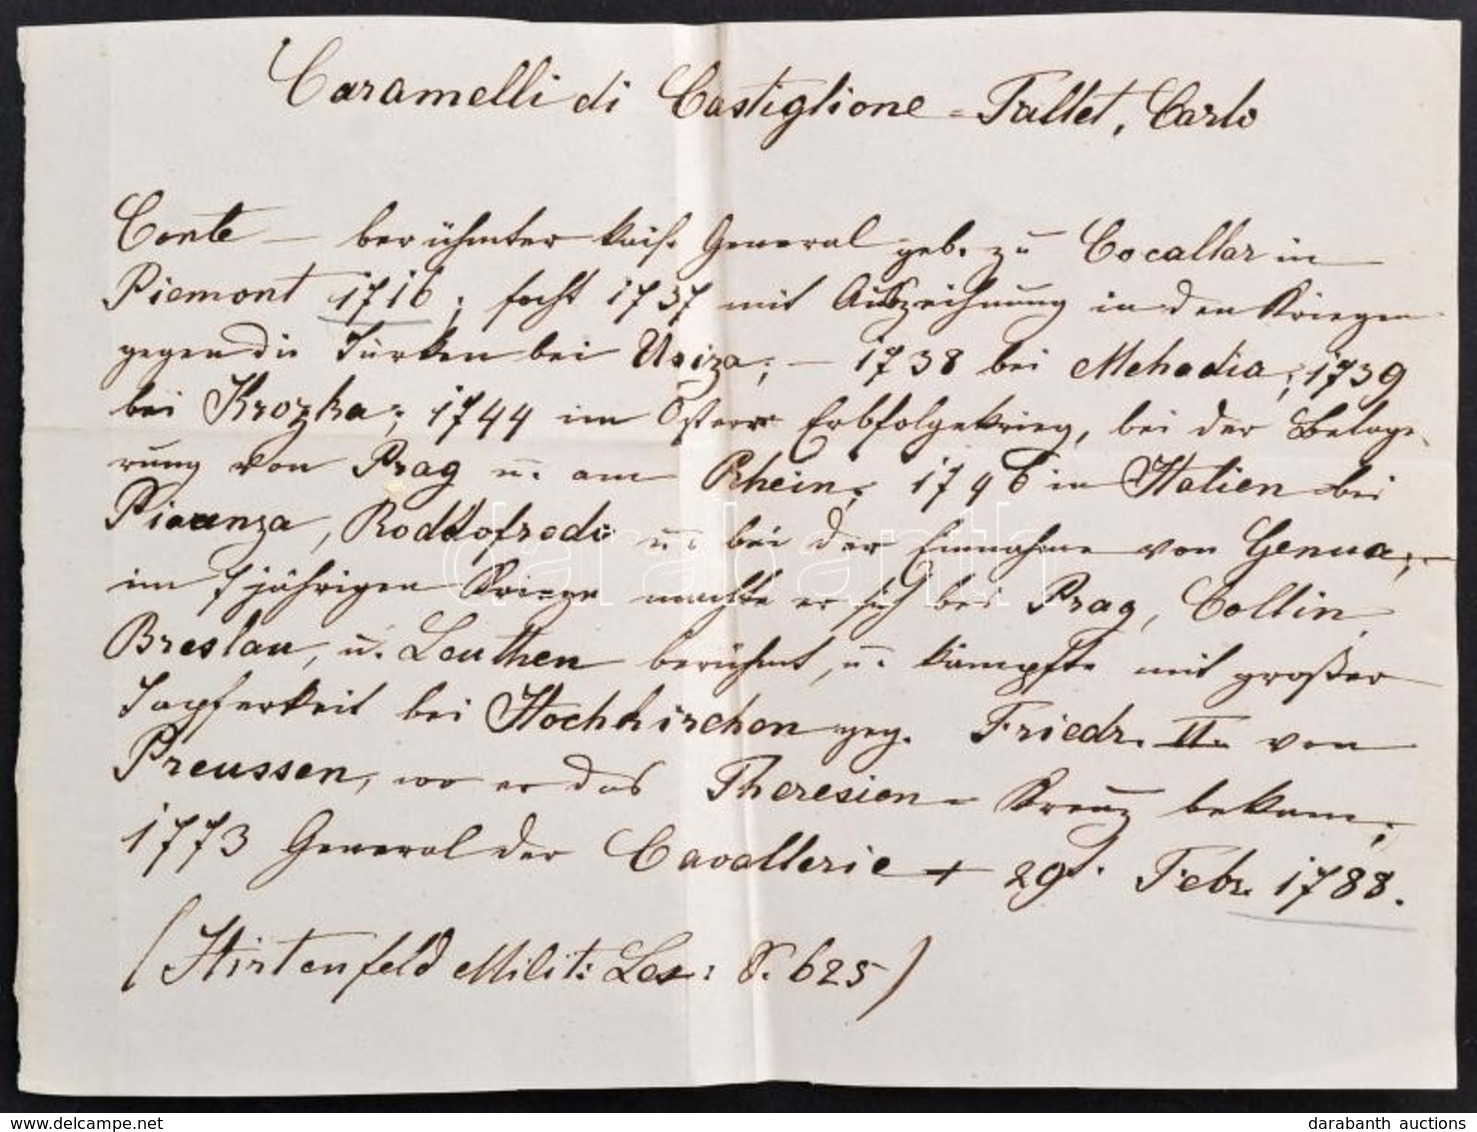 Caramelli di Castiglione-Fallet, Carlo
Conte — berühmter kais. General geb. zu Cocallar in
Piemont 1716; focht 1737 mit Auszeichnung in den Kriegen
gegen die Türken bei Usiza; — 1738 bei Mehadia; 1739
bei Krozka; 1744 im Österr Erbfolgekrieg, bei der Belage-
rung von Prag u. am Rhein; 1746 in Italien bei
Piacenza, Rodtofredo u. bei der Einnahme von Genua; —
im 7jährigen Kriege machte er sich bei Prag, Collin,
Breslau, u. Leuthen berühmt, u. kämpfte mit großer
Tapferkeit bei Hochkirchen geg. Friedr. II. von
Preussen, wo er das Theresien-Kreuz bekam;
1773 General der Cavallerie + 29t. Febr. 1788.
(Hirtenfeld Milit: Lex: S. 625)
darabanth
darabanth auctions
www.delcampe.net